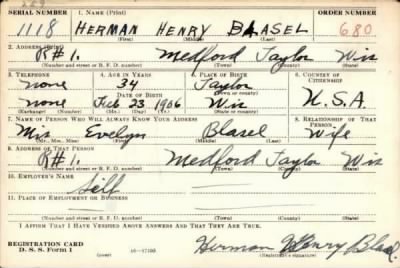 SERIAL NUMBER 1. NAME (Print) ORDER NUMBER
1118 HERMAN HENRY BLASEL 680
(First) (Middle) (Last)
2. ADDRESS (Print)
R#1. Medford Taylor Wis
(Number and street or R. F. D. number) (Town) (County) (State)
3. TELEPHONE 4. AGE IN YEARS 5. PLACE OF BIRTH 6. COUNTRY OF CITIZENSHIP
none 34 Taylor
DATE OF BIRTH
none Feb 23 1906 Wis U.S.A.
(Exchange) (Number) (Mo.) (Day) (Yr.) (State or country)
7. NAME OF PERSON WHO WILL ALWAYS KNOW YOUR ADDRESS 8. RELATIONSHIP OF THAT PERSON
Mis Evelyn Blasel Wife
(Mr., Mrs., Miss) (First) (Middle) (Last)
9. ADDRESS OF THAT PERSON
R#1. Medford Taylor Wis
(Number and street or R. F. D. number) (Town) (County) (State)
10. EMPLOYER'S NAME
Self
11. PLACE OF EMPLOYMENT OR BUSINESS
(Number and street or R. F. D. number) (Town) (County) (State)
I AFFIRM THAT I HAVE VERIFIED ABOVE ANSWERS AND THAT THEY ARE TRUE.
REGISTRATION CARD
D. S. S. Form 1 (over) 16-17105 Herman Henry Blasel
(Registrant's signature)